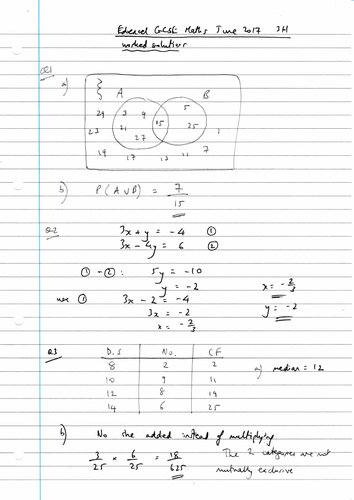 Edexcel GCSE Maths June 2017 3H
worked solutions
Q1
a)
ξ A B
29 3 9 5
23 21 15 25 1
27
19 17 13 11 7
b) P(A∪B) = 7/15
Q2 3x + y = -4 ①
3x - 4y = 6 ②
① - ②: 5y = -10
y = -2 x = -2/3
use ① 3x - 2 = -4 y = -2
3x = -2
x = -2/3
Q3 D.S No. CF
8 2 2 a) median = 12
10 9 11
12 8 19
14 6 25
b) No she added instead of multiplying
3/25 × 6/25 = 18/625 The 2 categories are not
mutually exclusive